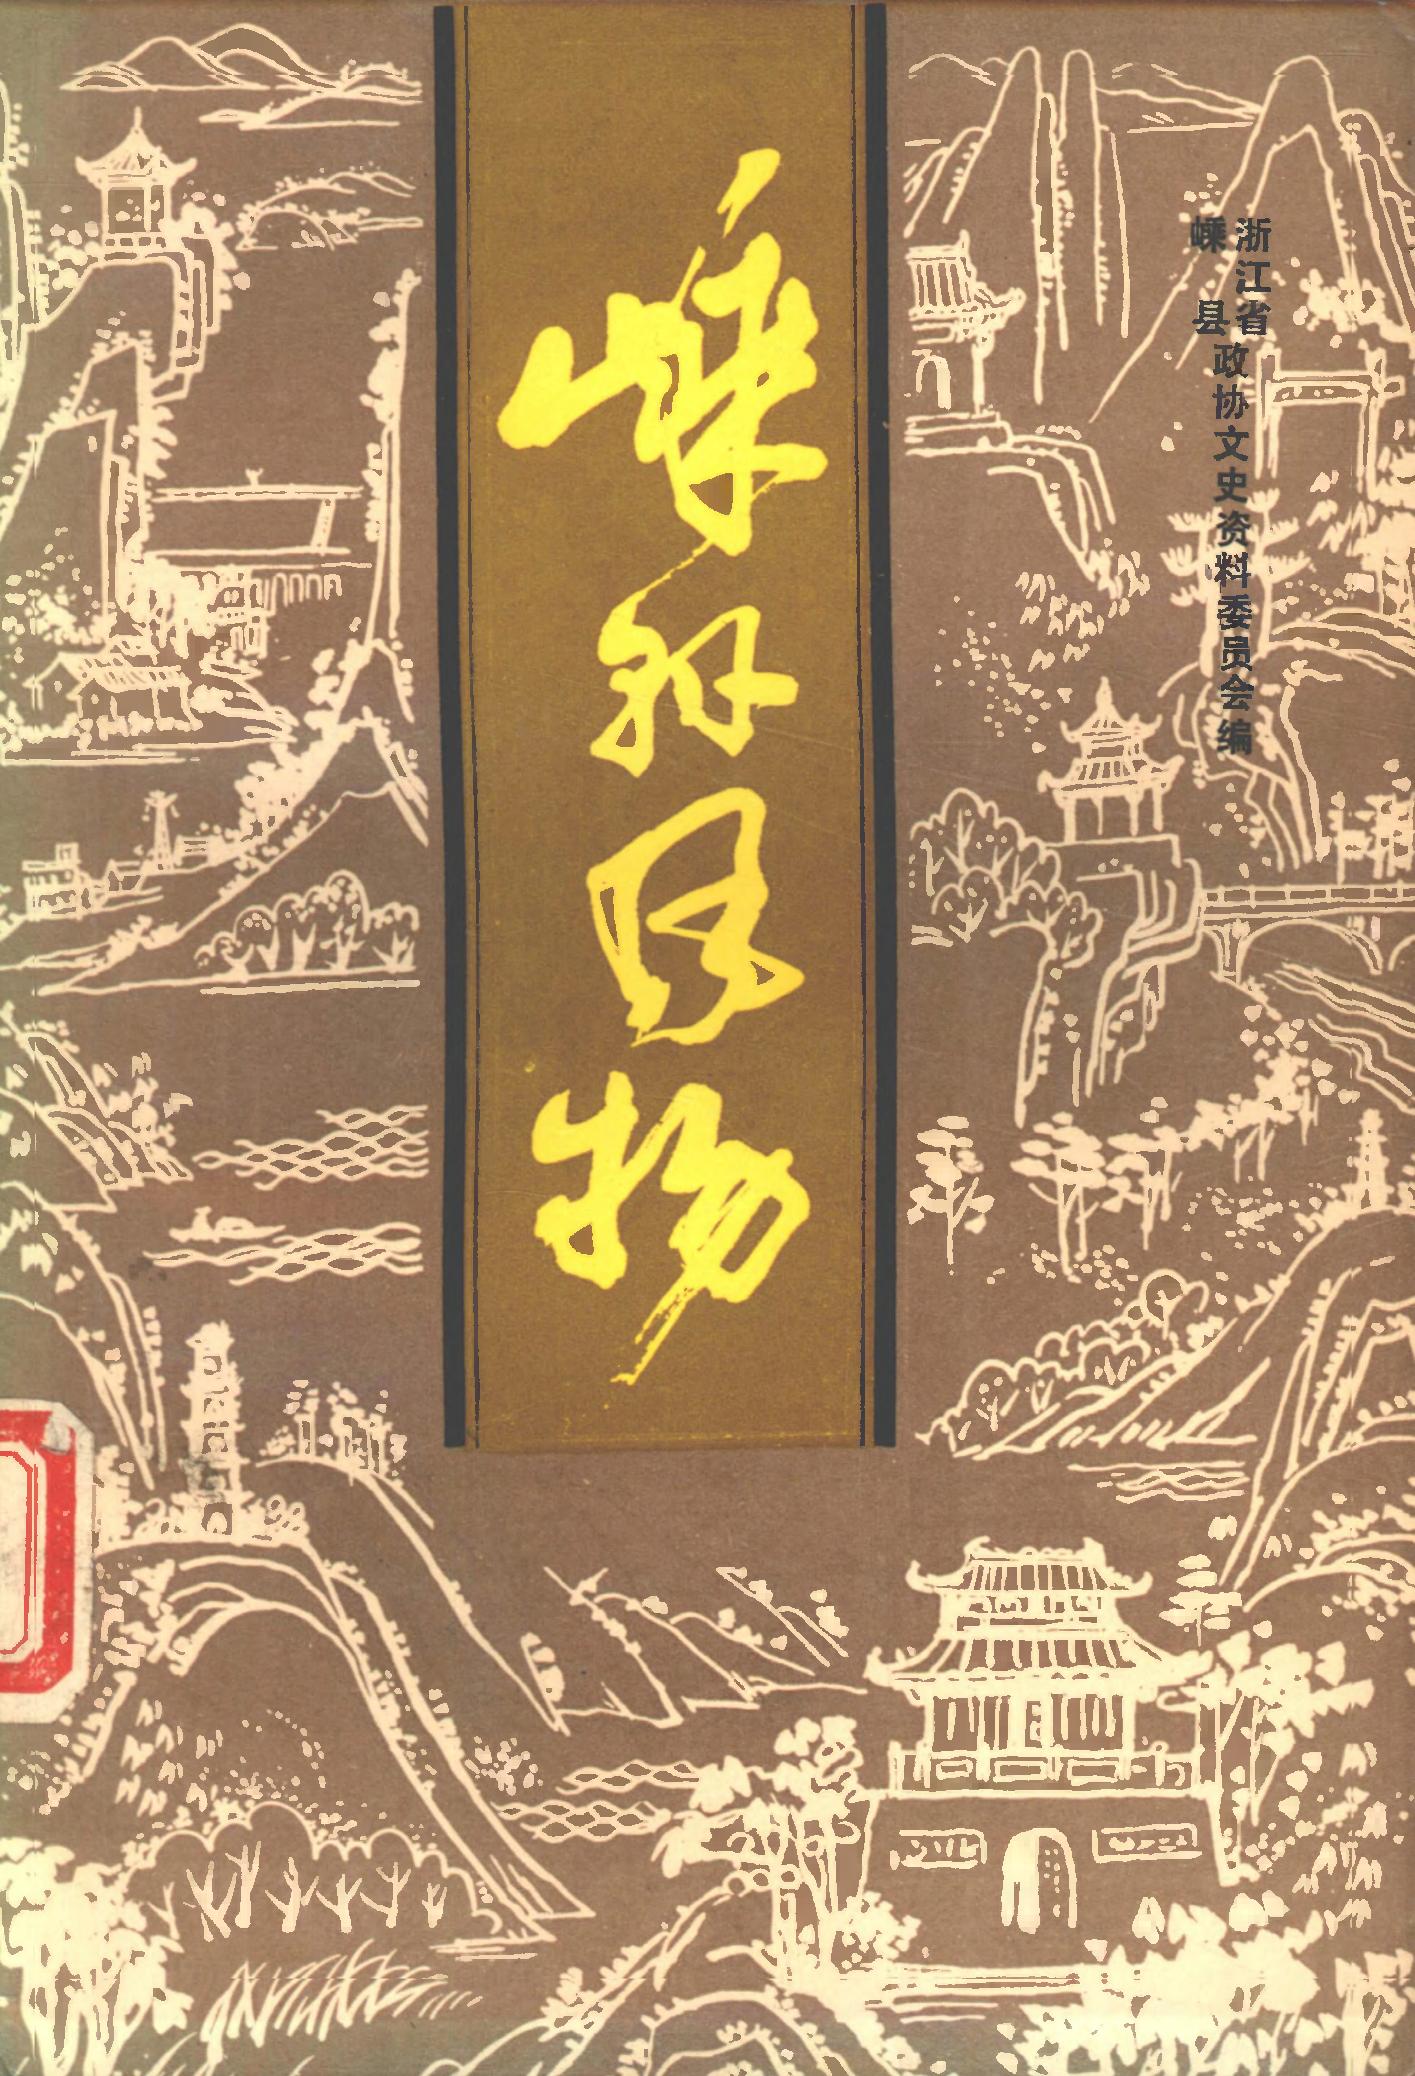 嵊縣風物
浙江省
嵊县
政协文史资料委员会编